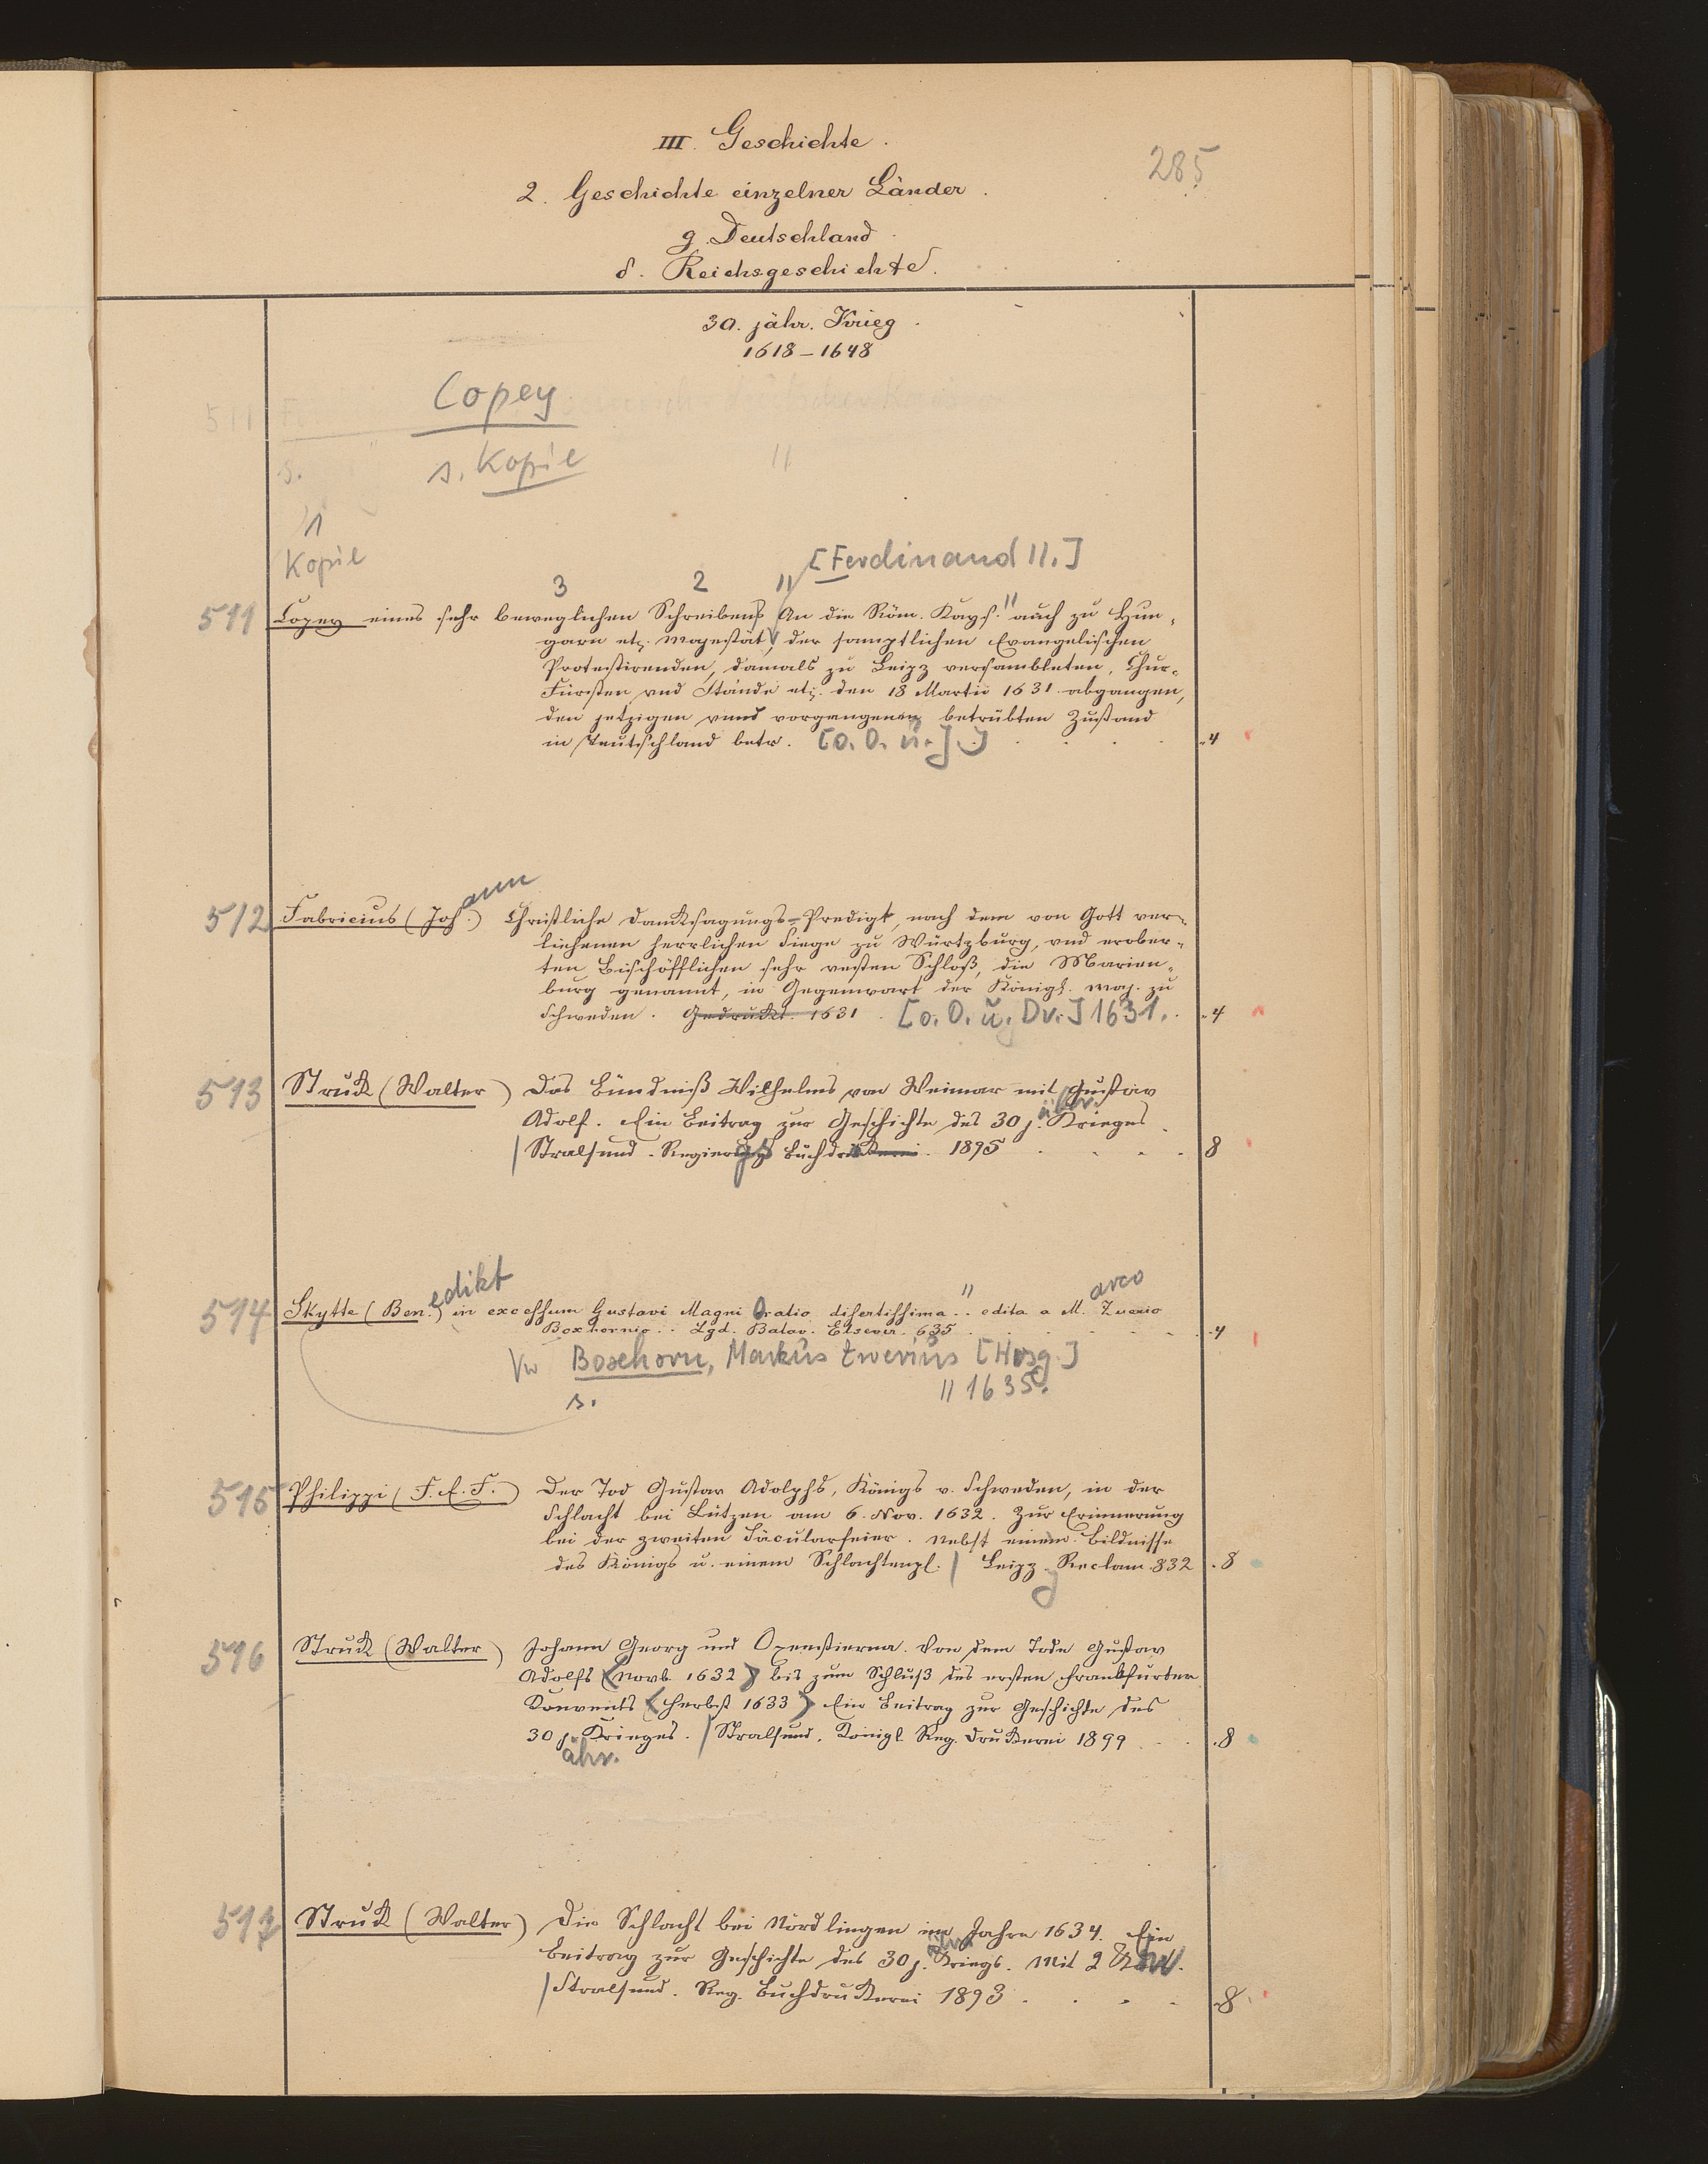 III. Geschichte.
285
2. Geschichte einzelner Länder.
g. Deutschland
δ. Reichsgeschichte.
30. jähr. Krieg.
1618-1648
Copey
511
s. Kopie
s.
11
1
Kopie
[Ferdinand II.]
3 2 11
511 Copey eines sehr beweglichen Schreibens An die Röm. Kays. auch zu Hun-
garn etz. Mayestät, der samptlichen Evangelischen
Protestirenden, damals zu Leipz versambleten, Chur-
Fürsten vnd Stände etz. den 18 Martii 1631 abgangen,
den jetzigen vnnd vorgangenen betrübten Zustand
in Teutschland betr. [O. O. u. J.] 4
512 Fabricius (Joh.ann) Christliche Danksagungs-Predigt, nach dem von Gott ver-
liehenen herrlichen Siege zu Würtzburg, vnd erober-
ten Bischöfflichen sehr vesten Schloß, die Marien-
burg genannt, in Gegenwart der Königl. Maj. zu
Schweden. Gedruckt. 1631. [o. O. u. Dr.] 1631. 4
513 Struck (Walter) Das Bündniß Wilhelms von Weimar mit Gustav
Adolf. Ein Beitrag zur Geschichte des 30 j.ähr. Krieges
Stralsund. Regierungs Buchdruckerei. 1895 8
514 Skytte (Ben.edikt) in excessum Gustavi Magni Oratio disertissima .. edita a M.arco Zuerio
Boxhornio .. Lgd. Batav. Elsevir. 635 4
Vw Boxhorn, Markus Zuerius [Hrsg.]
s. 11 1635.
515 Philippi (F. E. F.) Der Tod Gustav Adolphs, Königs v. Schweden, in der
Schlacht bei Lützen am 6. Nov. 1632. Zur Erinnerung
bei der zweiten Säcularfeier. Nebst einem Bildnisse
des Königs u. einem Schlachtenpl. Leipz. Reclam. 832 8
516 Struck (Walter) Johann Georg und Oxenstierna. Von dem Tode Gustav
Adolfs (Novb. 1632) bis zum Schluß des ersten Frankfurter
Konvents (Herbst 1633) Ein Beitrag zur Geschichte des
30 j. Krieges. Stralsund. Königl. Reg. Druckerei 1899 8
ähr.
517 Struck (Walter) Die Schlacht bei Nördlingen im Jahre 1634. Ein
Beitrag zur Geschichte des 30 j. Kriegs. Mit 2
Stralsund. Reg. Buchdruckerei 1893 8